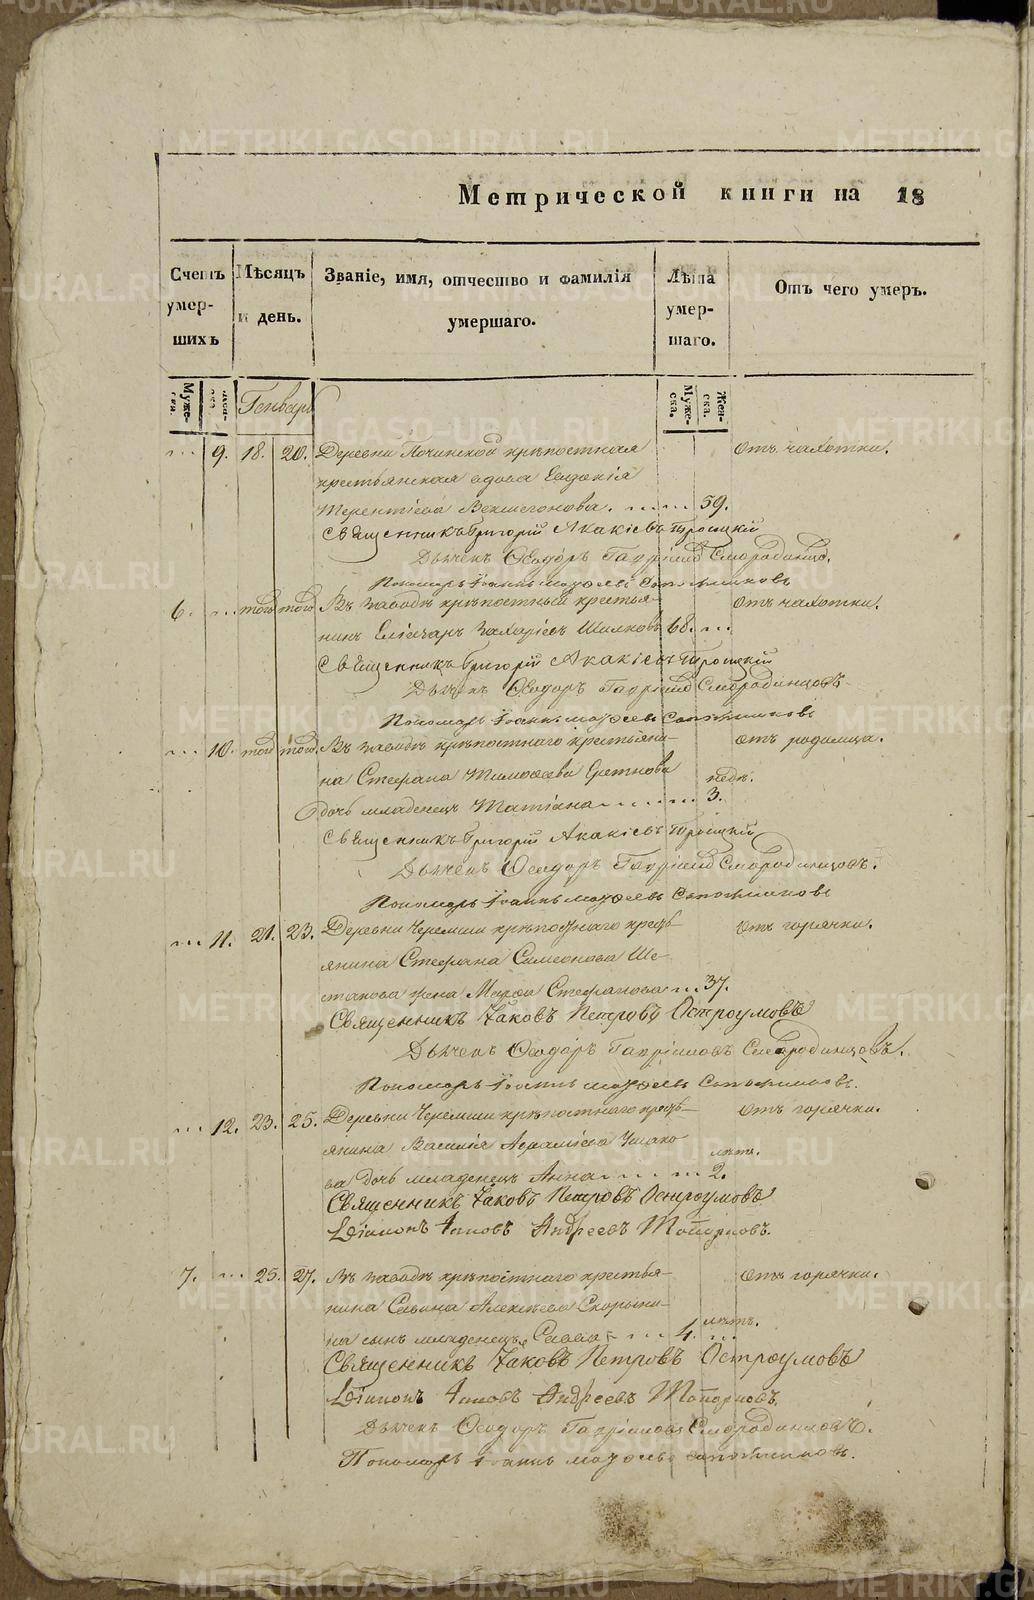 Метрической книги на 18
Счетъ умер- шихъ
Мѣсяцъ и день.
Званіе, имя, отчество и фамилія умершаго.
Лѣта умер- шаго.
Отъ чего умеръ.
Муже- ска.
Жен- ска.
Генварь
Муже- ска.
Жен- ска.
9. 18. 20. Деревни Починской крѣпостная Отъ чахотки.
крестьянская вдова Евдокія
Терентіева 59.
Священникъ Григорій Акакіевъ Троицкій
Дьячекъ Ѳеодоръ Гавріиловъ Смородинцовъ.
Пономарь Іоаннъ Матѳеевъ Сапожниковъ
6. того того Въ заводѣ крѣпостный крестья- Отъ чахотки.
нинъ Захаріевъ Шилковъ 68.
Священникъ Григорій Акакіевъ Троицкій
Дьячекъ Ѳеодоръ Гавріиловъ Смородинцовъ
Пономарь Іоаннъ Матѳеевъ Сапожниковъ
10. того того. Въ заводѣ крѣпостнаго крестьяни- отъ родимца.
на Стефана Тимоѳеева недѣ.
дочь младенецъ Татіана 3.
Священникъ Григорій Акакіевъ Троицкій
Дьячекъ Ѳеодоръ Гавріиловъ Смородинцовъ.
Пономарь Іоаннъ Матѳеевъ Сапожниковъ
11. 21. 23. Деревни Черемши крѣпостнаго кресть- Отъ горячки.
янина Стефана Симеонова Ше-
стакова жена Марѳа Стефанова 37.
Священникъ Іаковъ Петровъ Остроумовъ
Дьячекъ Ѳеодоръ Гавріиловъ Смородинцовъ.
Пономарь Іоаннъ Матѳеевъ Сапожниковъ.
12. 23. 25. Деревни Черемши крѣпостнаго кресть- Отъ горячки.
янина Василія Авраміева Ушако- лѣтъ.
ва дочь младенецъ Анна 2.
Священникъ Іаковъ Петровъ Остроумовъ
Діаконъ Іаковъ Андреевъ Топорковъ.
7. 25. 27. Въ заводѣ крѣпостнаго крестья- Отъ горячки.
нина Саввина Алексѣева Скорыни- лѣтъ.
на сынъ младенецъ Савва 4.
Священникъ Іаковъ Петровъ Остроумовъ
Діаконъ Іаковъ Андреевъ Топорковъ.
Дьячекъ Ѳеодоръ Гавріиловъ Смородинцовъ.
Пономарь Іоаннъ Матѳеевъ Сапожниковъ.
METRIKI.GASO-URAL.RU